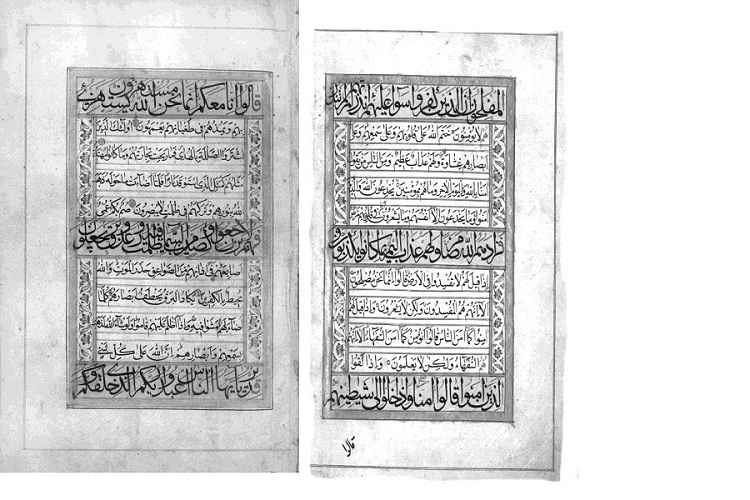 المفلحون ان الذين كفروا سواء عليهم ءانذرتهم ام لم تنذر
هم لا يؤمنون ختم الله على قلوبهم وعلى سمعهم وعلى
ابصارهم غشاوة ولهم عذاب عظيم ومن الناس من يقول
امنا بالله وباليوم الاخر وما هم بمؤمنين يخادعون الله والذين
امنوا وما يخدعون الا انفسهم وما يشعرون في قلوبهم مرض
فزادهم الله مرضا ولهم عذاب اليم بما كانوا يكذبون و
اذا قيل لهم لا تفسدوا في الارض قالوا انما نحن مصلحون
الا انهم هم المفسدون ولكن لا يشعرون واذا قيل لهم
امنوا كما امن الناس قالوا انؤمن كما امن السفهاء الا انهم
هم السفهاء ولكن لا يعلمون واذا لقوا
الذين امنوا قالوا امنا واذا خلوا الى شيطينهم
قالوا
قالوا انا معكم انما نحن مستهزءون الله يستهزئ
بهم ويمدهم في طغيانهم يعمهون اولئك الذين
اشتروا الضللة بالهدى فما ربحت تجارتهم وما كانوا مهتدين
مثلهم كمثل الذي استوقد نارا فلما اضاءت ما حوله ذهب
الله بنورهم وتركهم في ظلمت لا يبصرون صم بكم عمي
فهم لا يرجعون او كصيب من السماء فيه ظلمت ورعد وبرق يجعلون
اصابعهم في اذانهم من الصواعق حذر الموت والله
محيط بالكفرين يكاد البرق يخطف ابصارهم كلما
اضاء لهم مشوا فيه واذا اظلم عليهم قاموا ولو شاء الله لذهب
بسمعهم وابصارهم ان الله على كل شيء
قدير يايها الناس اعبدوا ربكم الذي خلقكم و